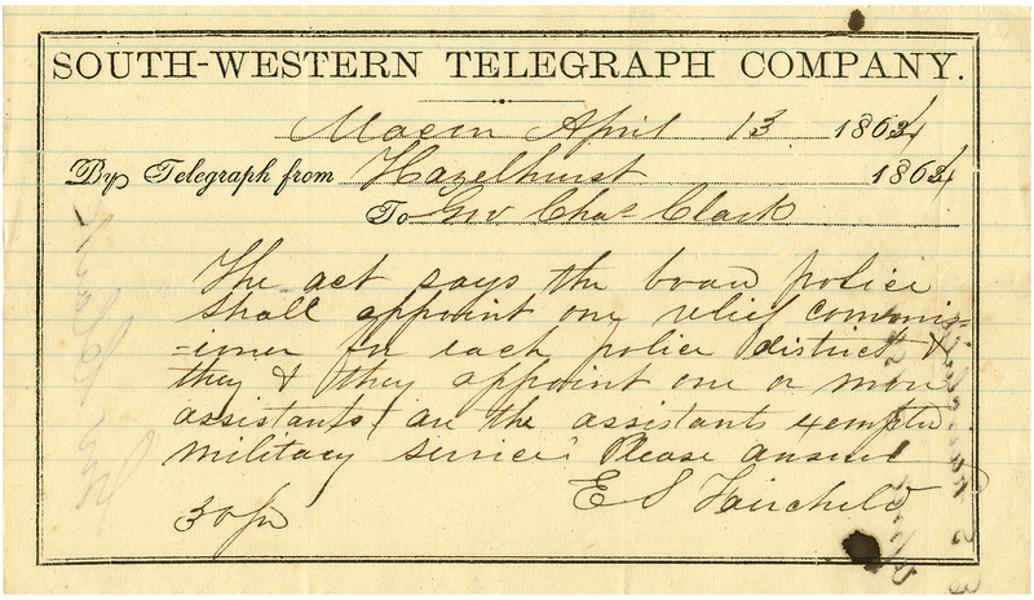 SOUTH-WESTERN TELEGRAPH COMPANY.
Macon April 13 1864
By Telegraph from Hazelhurst 1864
To Gov Chas Clark
The act says the board police
shall appoint one relief commis-
=ioner for each police district &
they & they appoint one or more
assistants are the assistants exempted
military service? Please answer
E S Fairchild
30 pd